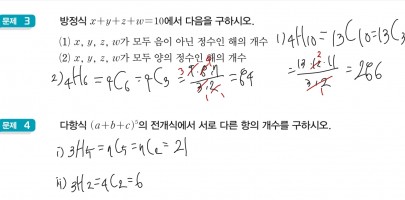 문제 3 방정식 x+y+z+w=10에서 다음을 구하시오.
(1) x, y, z, w가 모두 음이 아닌 정수인 해의 개수
(2) x, y, z, w가 모두 양의 정수인 해의 개수
1) 4H10=13C10=13C3
=13·12·11/3·2=286
2) 4H6=9C6=9C3=9·8·7/3·2=84
문제 4 다항식 (a+b+c)⁵의 전개식에서 서로 다른 항의 개수를 구하시오.
i) 3H5=7C5=7C2=21
ii) 3H2=4C2=6